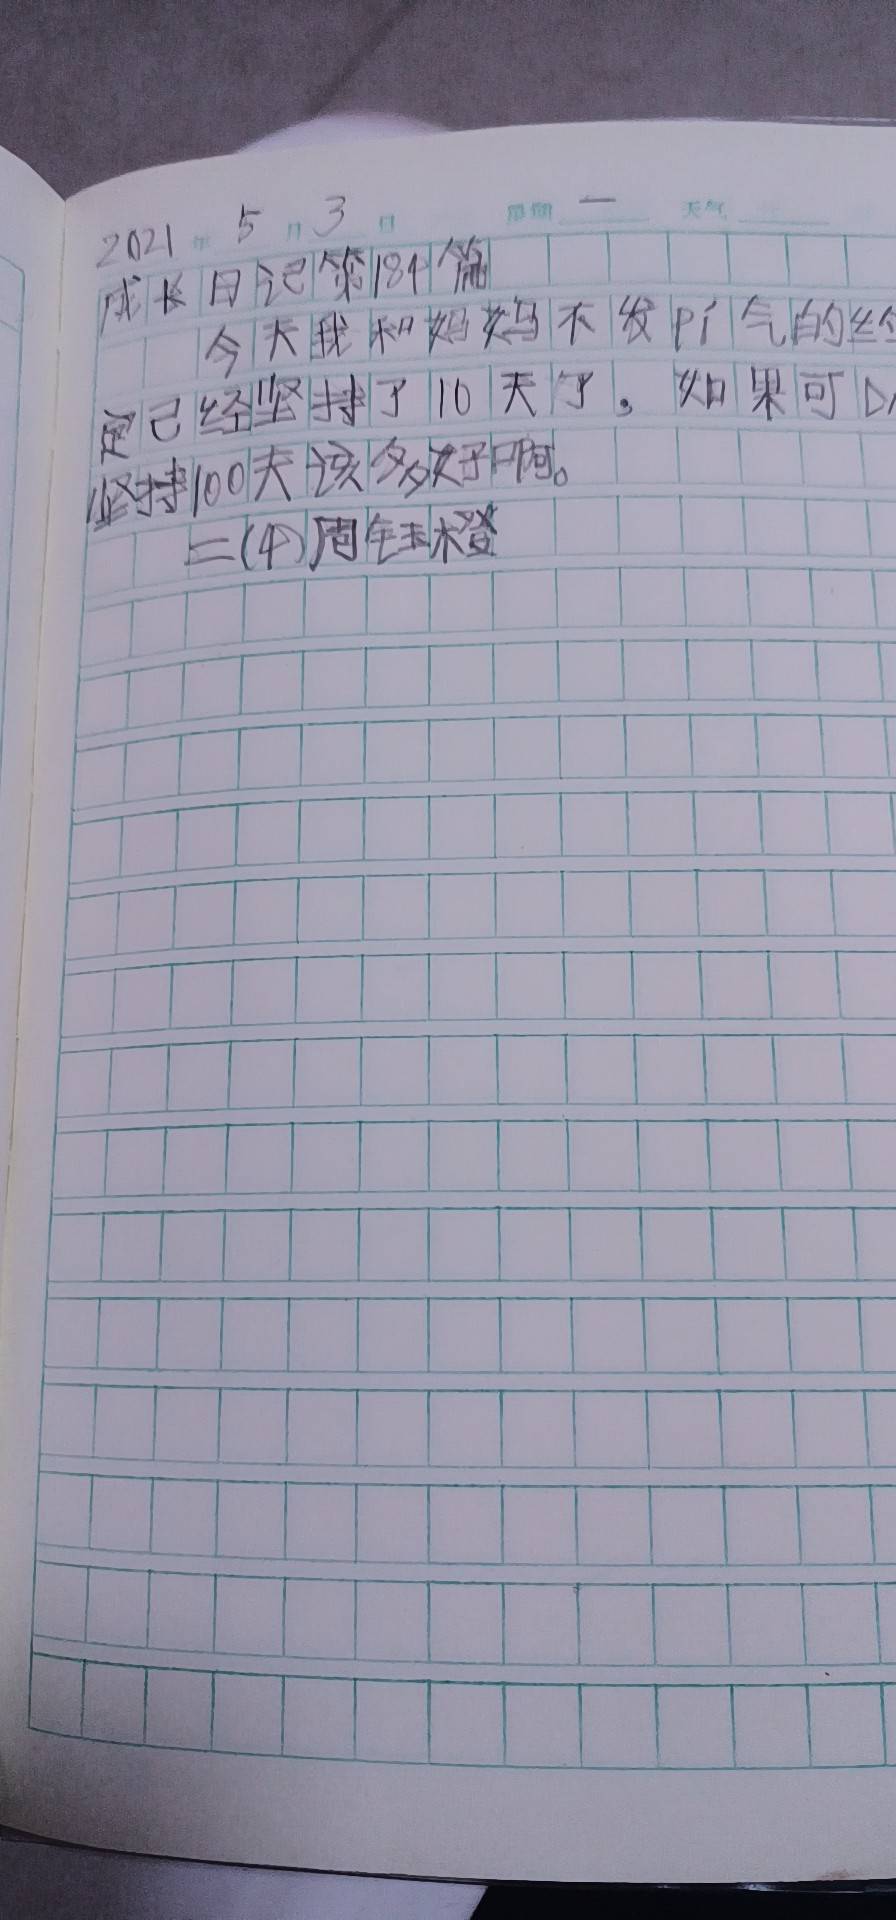 2021 年 5 月 3 日 星期 一 天气
成长日记第184篇
今天我和妈妈不发pí气的约
定已经坚持了10天了。如果可以
坚持100天该多好啊。
二(4)周钰橙